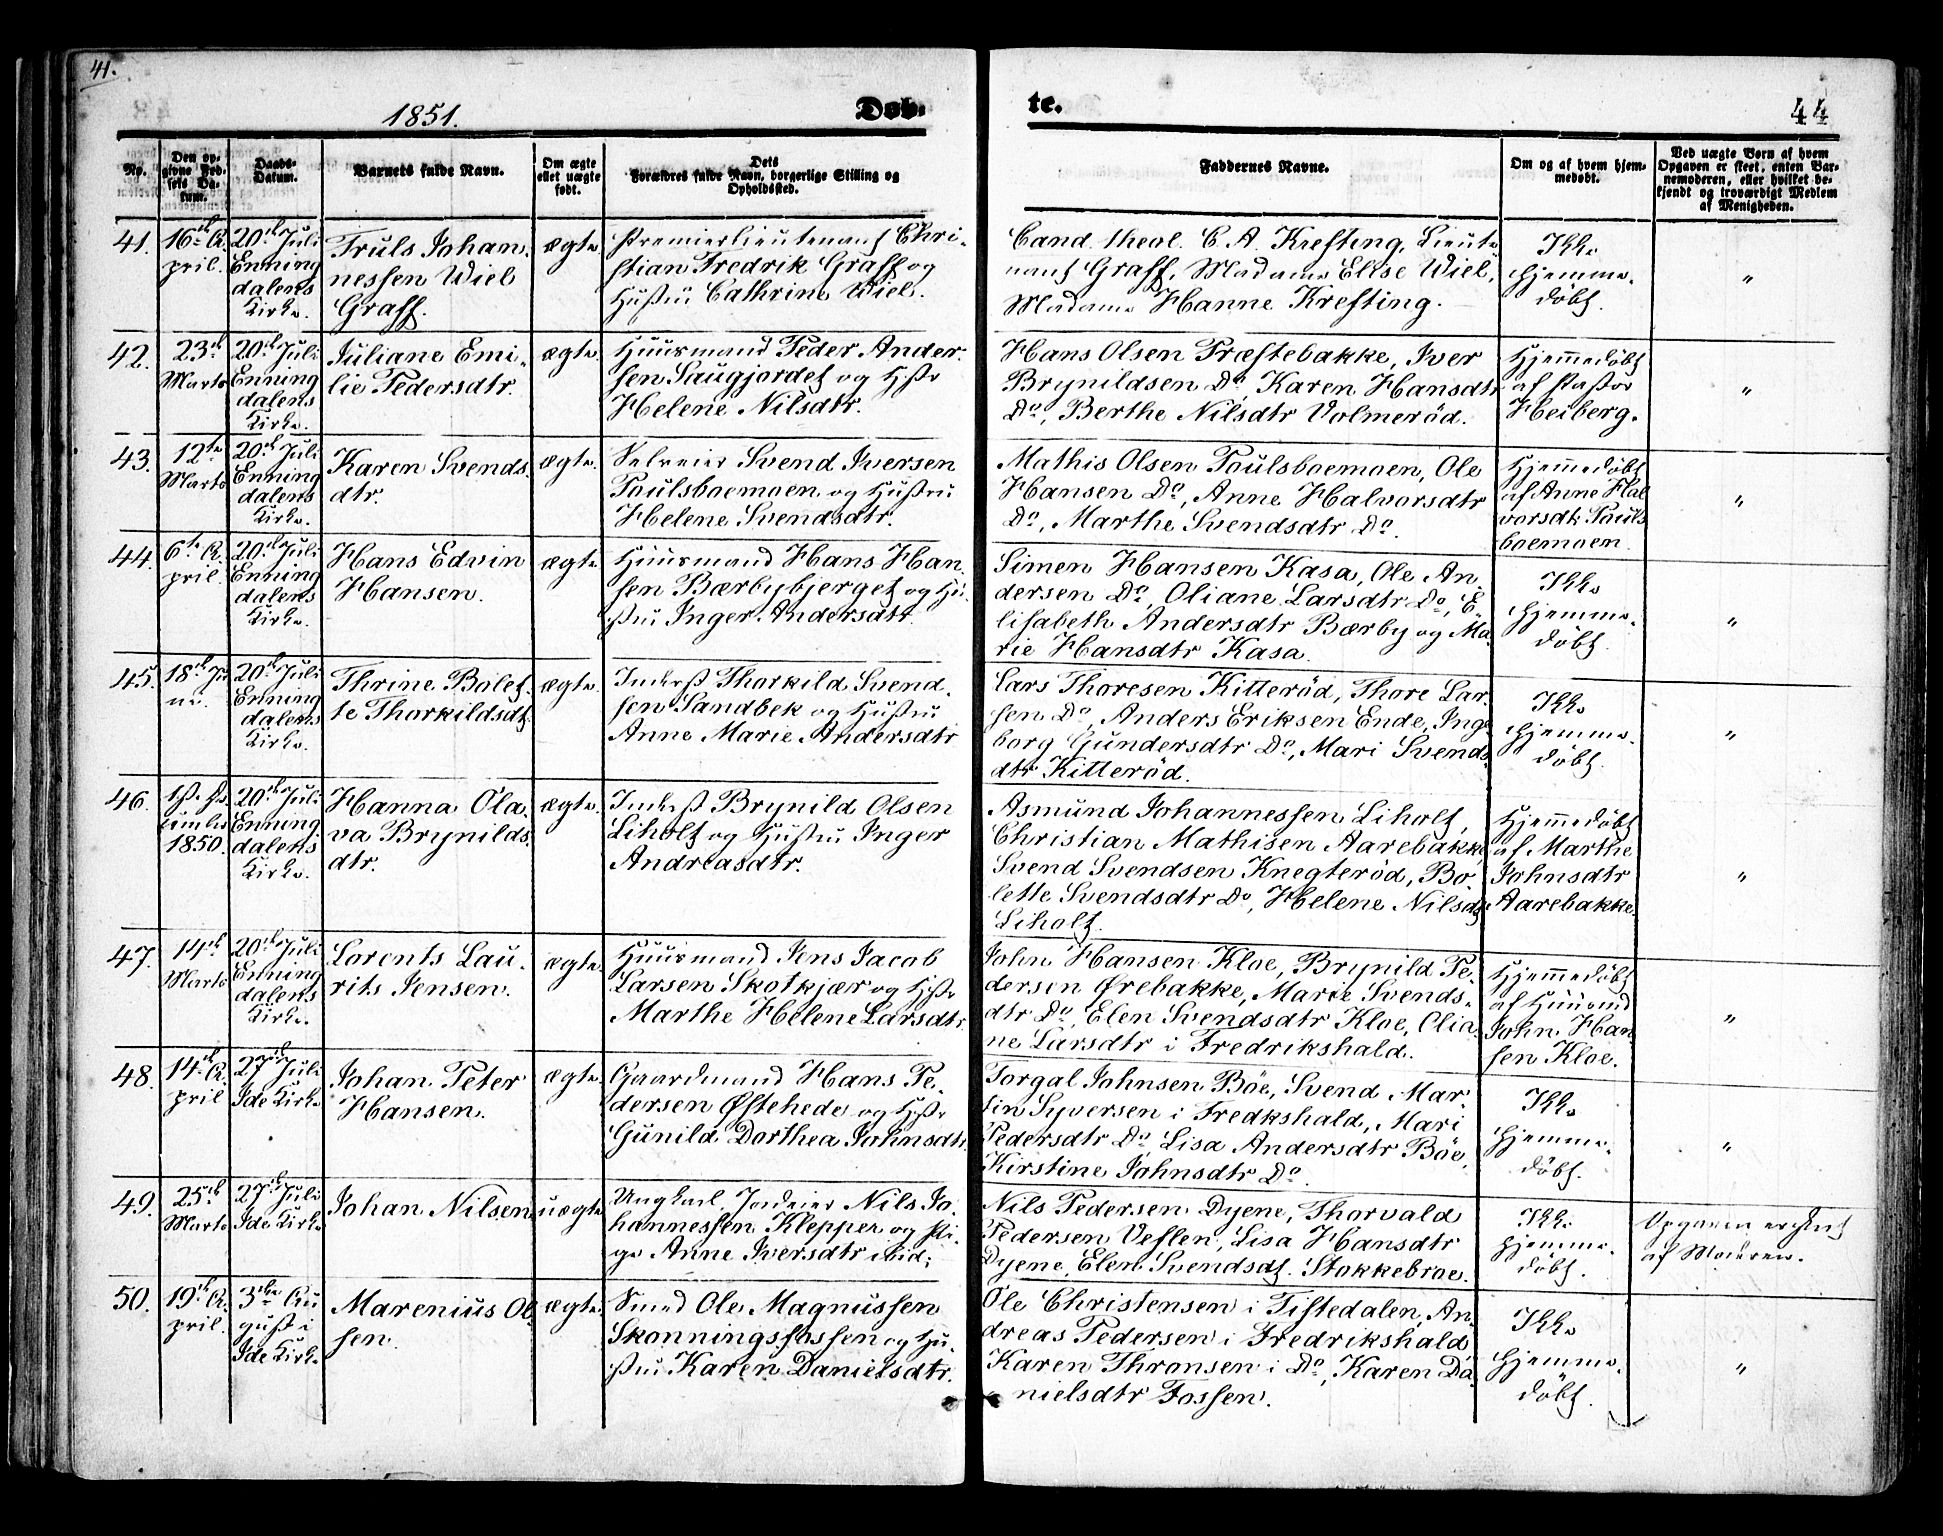 41.
1851.
Døb-
te.
44
No.
Den op-
givne Fød-
sels Da-
tum.
Daabs-
Datum.
Barnets fulde Navn.
Om ægte
eller uægte
født.
Dets
Forældres fulde Navn, borgerlige Stilling og
Opholdssted.
Faddernes Navne.
Om og af hvem hjem-
medøbt.
Ved uægte Børn af hvem
Opgaven er skeet, enten Bar-
nemoderen, eller hvilket be-
kjendt og troværdigt Medlem
af Menigheden.
41.
16de A-
pril.
20de Juli
Enning
dalens
Kirke.
Truls Johan-
nessen Wiel
Graff.
ægte
Premierlieutenant Chri-
stian Fredrik Graff og
Hustru Cathrine Wiel.
Cand. theol. C. A. Krefting, Lieute
nant Graff, Madame Elise Wiel,
Madame Hanne Krefting.
Ikke
hjemme-
døbt.
"
42.
23de
Marts
20de Juli
Enning
dalens
Kirke.
Juliane Emi-
lie Pedersdtr.
ægte.
Huusmand Peder Ander-
sen Saugjordet og Hstr
Helene Nilsdtr.
Hans Olsen Præstebakke, Iver
Brynildsen Do, Karen Hansdtr
Do, Berthe Nilsdtr Volmeröd.
Hjemmedøbt
af Pastor
Heiberg.
"
43.
12te
Marts
20de Juli
Enning
dalens
Kirke.
Karen Svends-
dtr.
ægte.
Selveier Svend Iversen
Poulsboemoen og Hustru
Helene Svendsdtr.
Mathis Olsen Poulsboemoen, Ole
Hansen Do, Anne Halvorsdtr
Do, Marthe Svendsdtr Do.
Hjemmedøbt
af Anne Hal
vorsdtr Pouls
boemoen.
"
44.
6te A-
pril.
20de Juli
Enning
dalens
Kirke.
Hans Edvin
Hansen.
ægte.
Huusmand Hans Han-
sen Bærbybjerget og Hu-
stru Inger Andersdtr.
Simen Hansen Kasa, Ole An-
dersen Do, Oliane Larsdtr Do, E-
lisabeth Andersdtr Bærby og Ma-
rie Hansdtr Kasa.
Ikke
hjemme-
døbt.
"
45.
18de Ju
ni.
20de Juli
Enning
dalens
Kirke.
Thrine Bolet-
te Thorkildsdtr.
ægte.
Inderst Thorkild Svend-
sen Sandbek og Hustru
Anne Marie Andersdtr
Lars Thoresen Kitteröd, Thore Lar-
sen Do, Anders Eriksen Ende, Inge-
borg Gundersdtr Do, Mari Svends-
dtr Kitteröd.
Ikke
hjemme-
døbt.
"
46.
1ste De
cember
1850.
20de Juli
Enning
dalens
Kirke.
Hanna Ola-
va Brynilds-
dtr.
ægte.
Inderst Brynild Olsen
Liholt og Hustru Inger
Andreasdtr.
Asmund Johannessen Liholt,
Christian Mathisen Aarebakke
Svend Svendsen Knegteröd, Bo-
lette Svendsdtr Do, Helene Nilsdtr
Liholt.
Hjemmedøbt
af Marthe
Johnsdtr
Aarebakke.
"
47.
14de
Marts
20de Juli
Enning
dalens
Kirke.
Lorents Lau-
rits Jensen.
ægte.
Huusmand Jens Jacob
Larsen Skotkjær og Hstr
Marthe Helene Larsdtr.
John Hansen Kloe, Brynild Pe-
dersen Ørebakke, Marie Svends-
dtr Do, Elen Svendsdtr Kloe, Olia-
ne Larsdtr i Fredrikshald.
Hjemmedøbt
af Huusmd
John Han-
sen Kloe.
"
48.
14de A-
pril
27de Juli
Ide Kirke
Johan Peter
Hansen.
ægte.
Gaardmand Hans Pe-
dersen Østehede og Hstr
Gunild Dorthea Johnsdtr.
Torgal Johnsen Böe, Svend Mar-
tin Syversen i Fredkshald, Mari
Pedersdtr Do, Lisa Andersdtr Böe,
Kirstine Johnsdtr Do.
Ikke
hjemme-
døbt.
"
49.
25de
Marts
27de Juli
Ide Kirke
Johan Nilsen
uægte
Ungkarl, Jordeier Nils Jo-
hannessen Klepper og Pi-
ge Anne Iversdtr ibid:
Nils Pedersen Dyene, Thorvald
Pedersen Veslen, Lisa Hansdtr
Dyene, Elen Svendsdt. Stokkebroe.
Ikke
hjemme-
døbt.
Opgaven er skeet
af Moderen.
50.
19de A-
pril.
3die Au
gust i
Ide Kirke
Marenius Ol-
sen.
ægte.
Smed Ole Magnussen
Skonningsfossen og Hu-
stru Karen Danielsdtr.
Ole Christensen i Tistedalen, An-
dreas Pedersen i Fredrikshald
Karen Thronsen i Do, Karen Da-
nielsdtr Fossen.
Ikke
hjemme-
døbt.
"